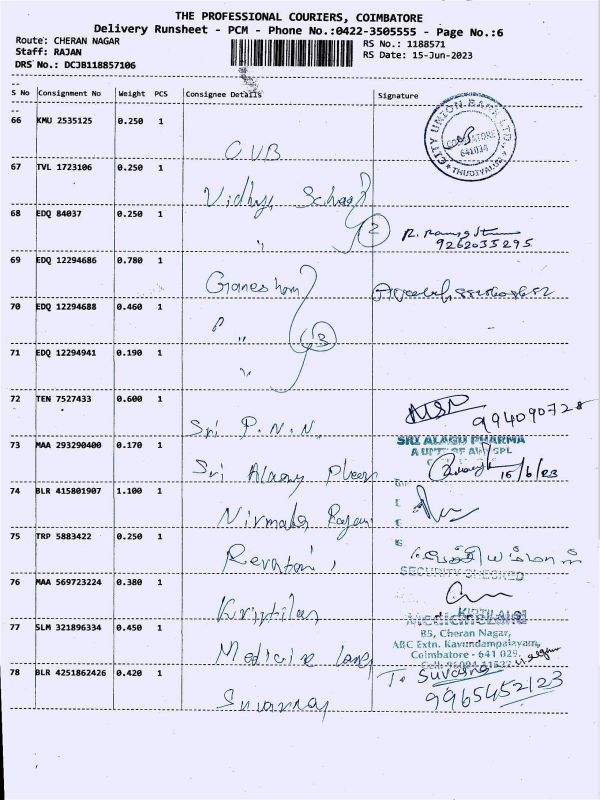 THE PROFESSIONAL COURIERS, COIMBATORE
Delivery Runsheet - PCM - Phone No.:0422-3505555 - Page No.:6
Route: CHERAN NAGAR
RS No.: 1188571
Staff: RAJAN
RS Date: 15-Jun-2023
DRS No.: DCJB118857106
S No Consignment No Weight PCS Consignee Details Signature
66 KMU 2535125 0.250 1
C.U.B
CITY UNION BANK LTD.
COIMBATORE
641034
THUDIYALUR
67 TVL 1723106 0.250 1
Vidhya
68 EDQ 84037 0.250 1
" 2
9262035295
69 EDQ 12294686 0.780 1
Ganesham
70 EDQ 12294688 0.460 1
" 3
71 EDQ 12294941 0.190 1
"
72 TEN 7527433 0.600 1
Sri P.N.N.
994090728
73 MAA 293290400 0.170 1
Sri
SRI ALAGU PHARMA
A UNIT OF
15/6/23
74 BLR 415801907 1.100 1
Nirmala Rajan
75 TRP 5883422 0.250 1
Revathi
SECURITY CHECKED
76 MAA 569723224 0.380 1
77 SLM 321896334 0.450 1
Medicine Land
Medicine Land
B5, Cheran Nagar,
ABC Extn. Kavundampalayam,
Coimbatore - 641 029.
78 BLR 4251862426 0.420 1
Suvarna
9965452123